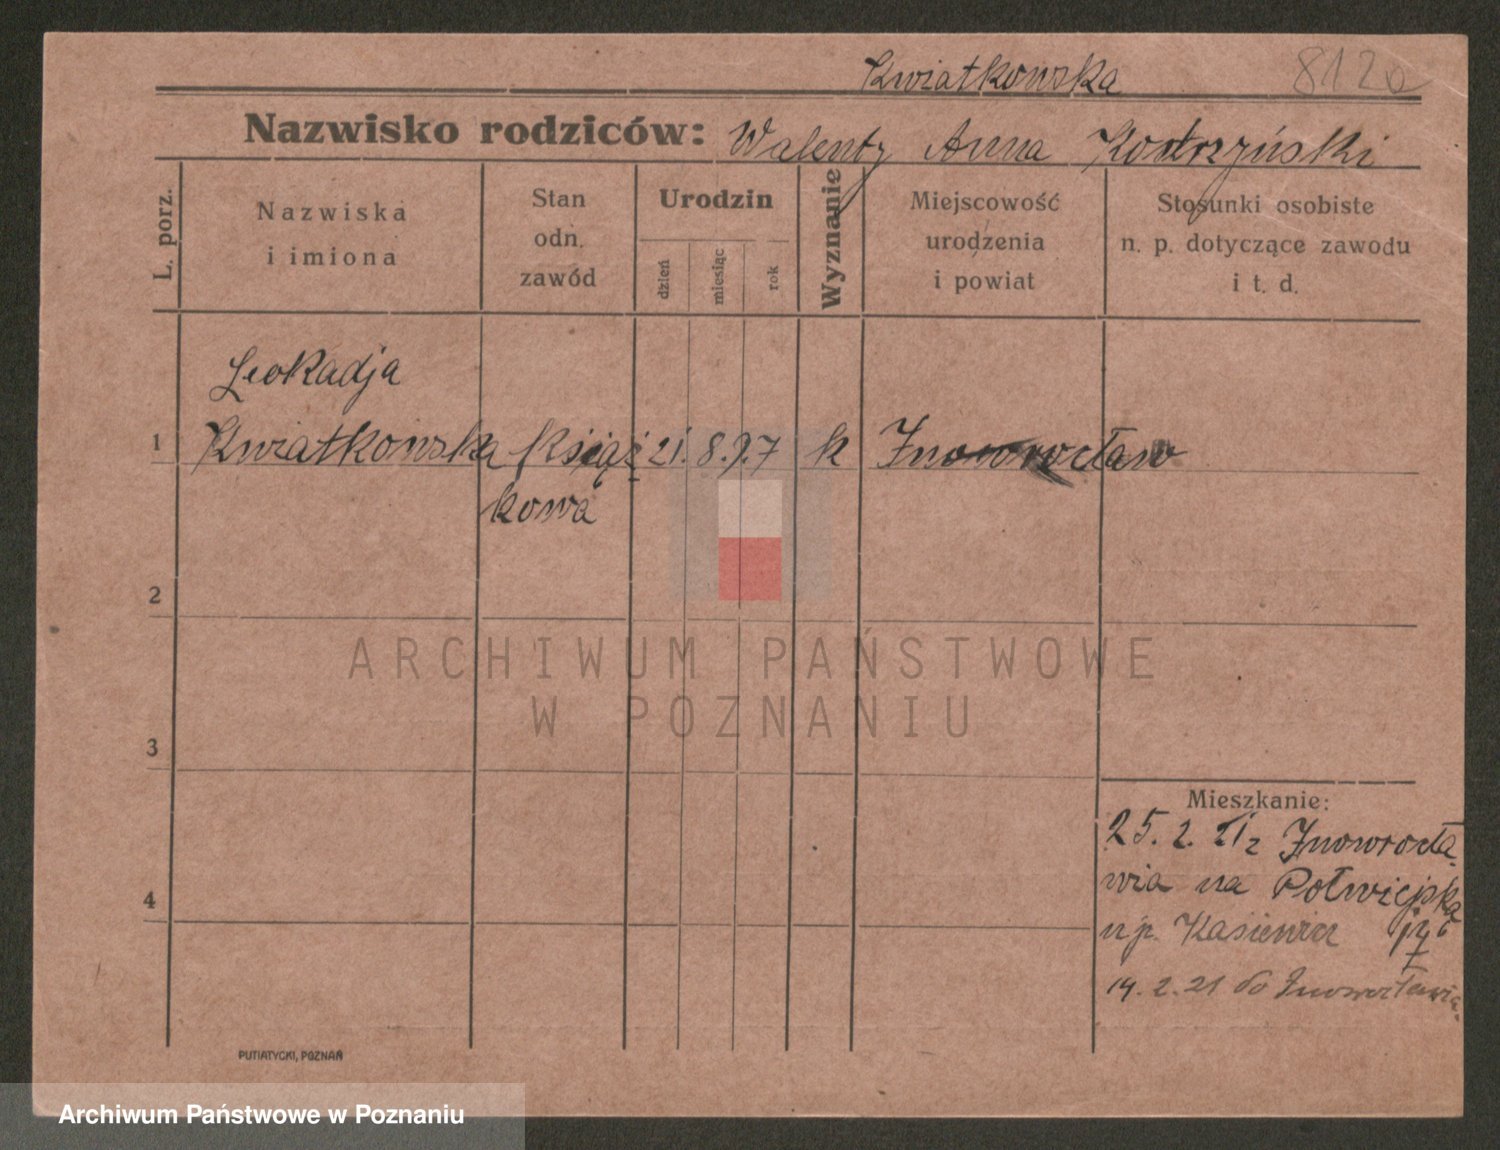 Kwiatkowska 812a
Nazwisko rodziców: Walenty Anna
L. porz.
Nazwiska
i imiona
Stan
odn.
zawód
Urodzin
dzień
miesiąc
rok
Wyznanie
Miejscowość
urodzenia
i powiat
Stosunki osobiste
n. p. dotyczące zawodu
i t. d.
Leokadja
1 Kwiatkowska Książ 21. 8. 97 k Inowrocław
kowa
2
3
4
Mieszkanie:
25. 2. 21 z Inowrocła
wia na Półwiejską
u p.
14. 2. 21 do Inowrocławia.
PUTIATYCKI, POZNAŃ
ARCHIWUM PAŃSTWOWE
W POZNANIU
Archiwum Państwowe w Poznaniu